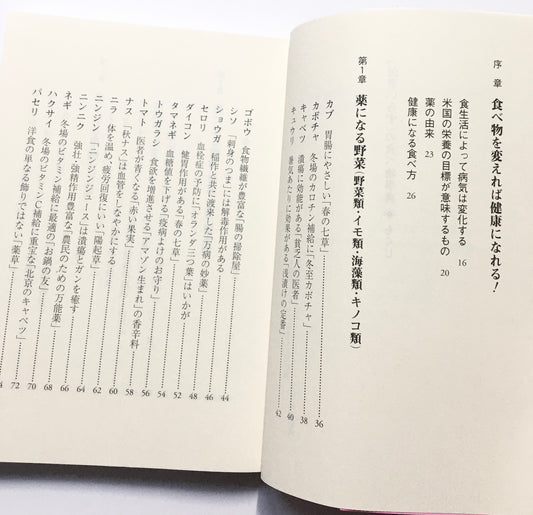 序章 食べ物を変えれば健康になれる！
食生活によって病気は変化する 16
米国の栄養の目標が意味するもの 20
薬の由来 23
健康になる食べ方 26
第1章 薬になる野菜（野菜類・イモ類・海藻類・キノコ類）
カブ 胃腸にやさしい「春の七草」 36
カボチャ 冬場のカロチン補給に「冬至カボチャ」 38
キャベツ 潰瘍に効能がある「貧乏人の医者」 40
キュウリ 暑気あたりに効果がある「浅漬けの定番」 42
ゴボウ 食物繊維が豊富な「腸の掃除屋」 44
シソ 「刺身のつま」には解毒作用がある 46
ショウガ 稲作と共に渡来した「万病の妙薬」 48
セロリ 血栓症の予防に「オランダ三つ葉」はいかが 52
ダイコン 健胃作用がある「春の七草」 48
タマネギ 血糖値を下げる「疫病よけのお守り」 54
トウガラシ 食欲を増進させる「アマゾン生まれ」の香辛料 56
トマト 医者が青くなる「赤い果実」 58
ナス 「秋ナス」は血管をしなやかにする 60
ニラ 体を温め、疲労回復にいい「陽起草」 62
ニンジン 「ニンジンジュース」は潰瘍とガンを癒す 64
ニンニク 強壮・強精作用豊富な「農民のための万能薬」 66
ネギ 冬場のビタミン補給に最適の「お鍋の友」 68
ハクサイ 冬場のビタミンC補給に重宝な「北京のキャベツ」 70
パセリ 洋食の単なる飾りではない「薬草」 72